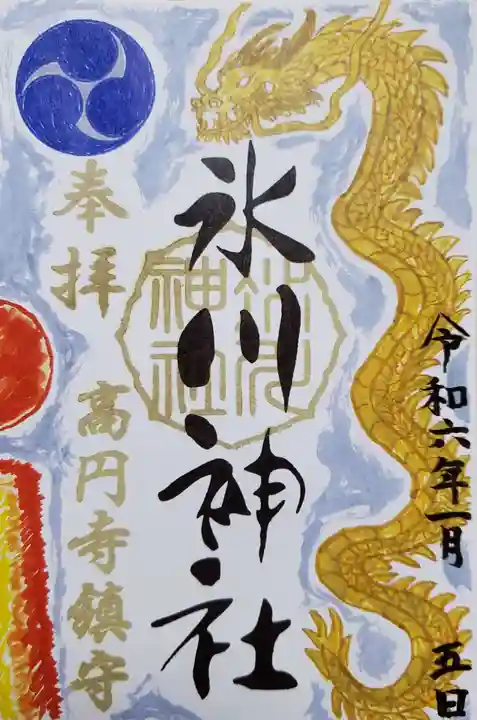 令和六年一月 五日
氷川神社
氷川
神社
奉拝 高円寺鎮守